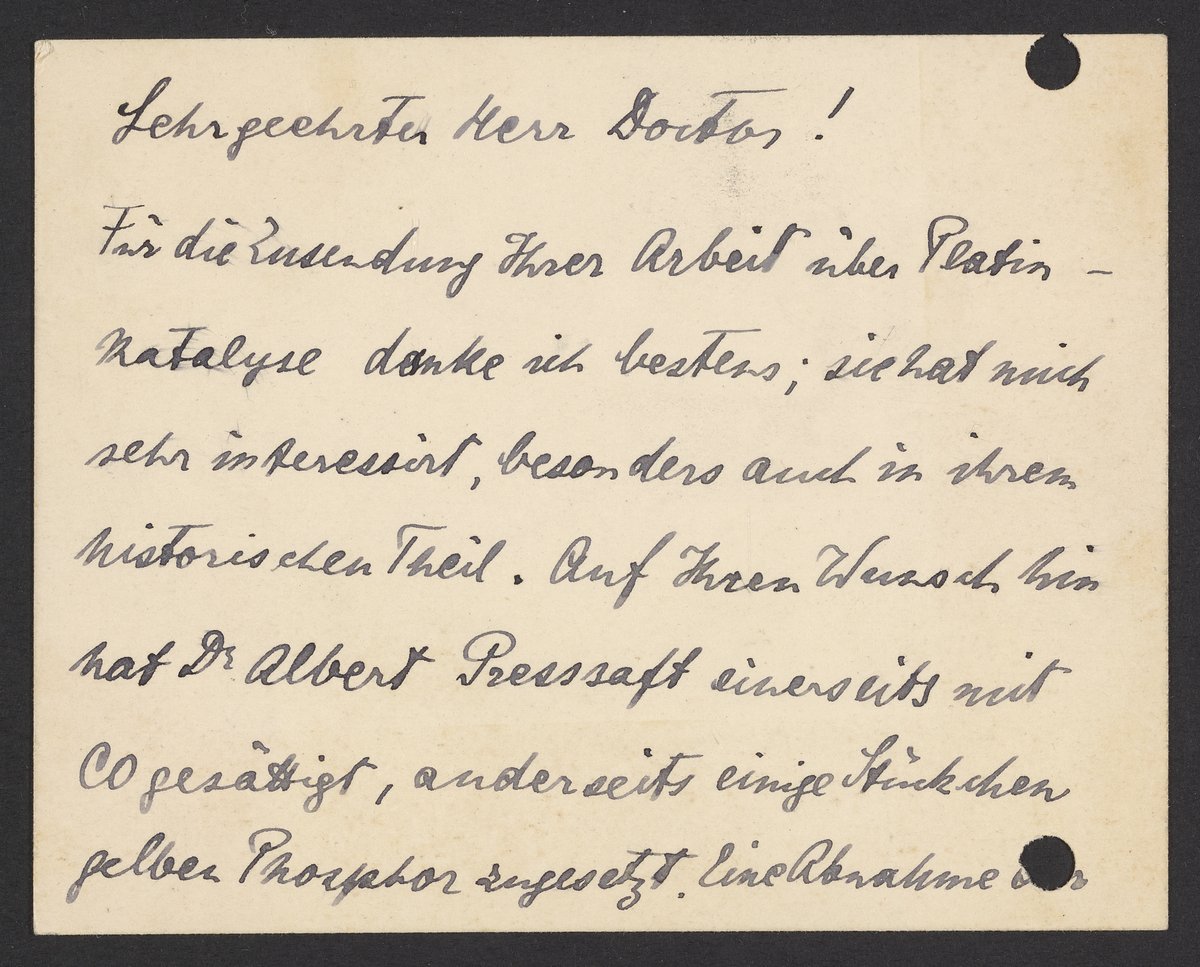 Sehrgeehrter Herr Doctor!
Für die Zusendung Ihrer Arbeit über Platin-
katalyse danke ich bestens; sie hat mich
sehr interessirt, besonders auch in ihrem
historischen Theil. Auf Ihren Wunsch hin
hat Dr Albert Presssaft einerseits mit
CO gesättigt, anderseits einige Stückchen
gelben Phosphor zugesetzt. Eine Abnahme